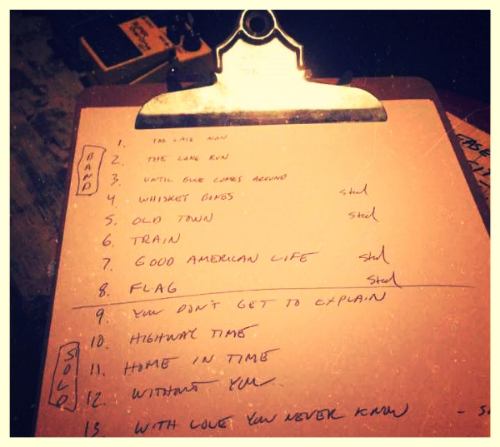 BAND
1.
2. THE LONG RUN
3. UNTIL BLUE COMES AROUND
4 WHISKEY BONES steel
5. OLD TOWN steel
6. TRAIN
7. GOOD AMERICAN LIFE steel
8. FLAG steel
9. YOU DON'T GET TO EXPLAIN
SOLO
10. HIGHWAY TIME
11. HOME IN TIME
12. WITHOUT YOU
13 WITH LOVE YOU NEVER KNOW -